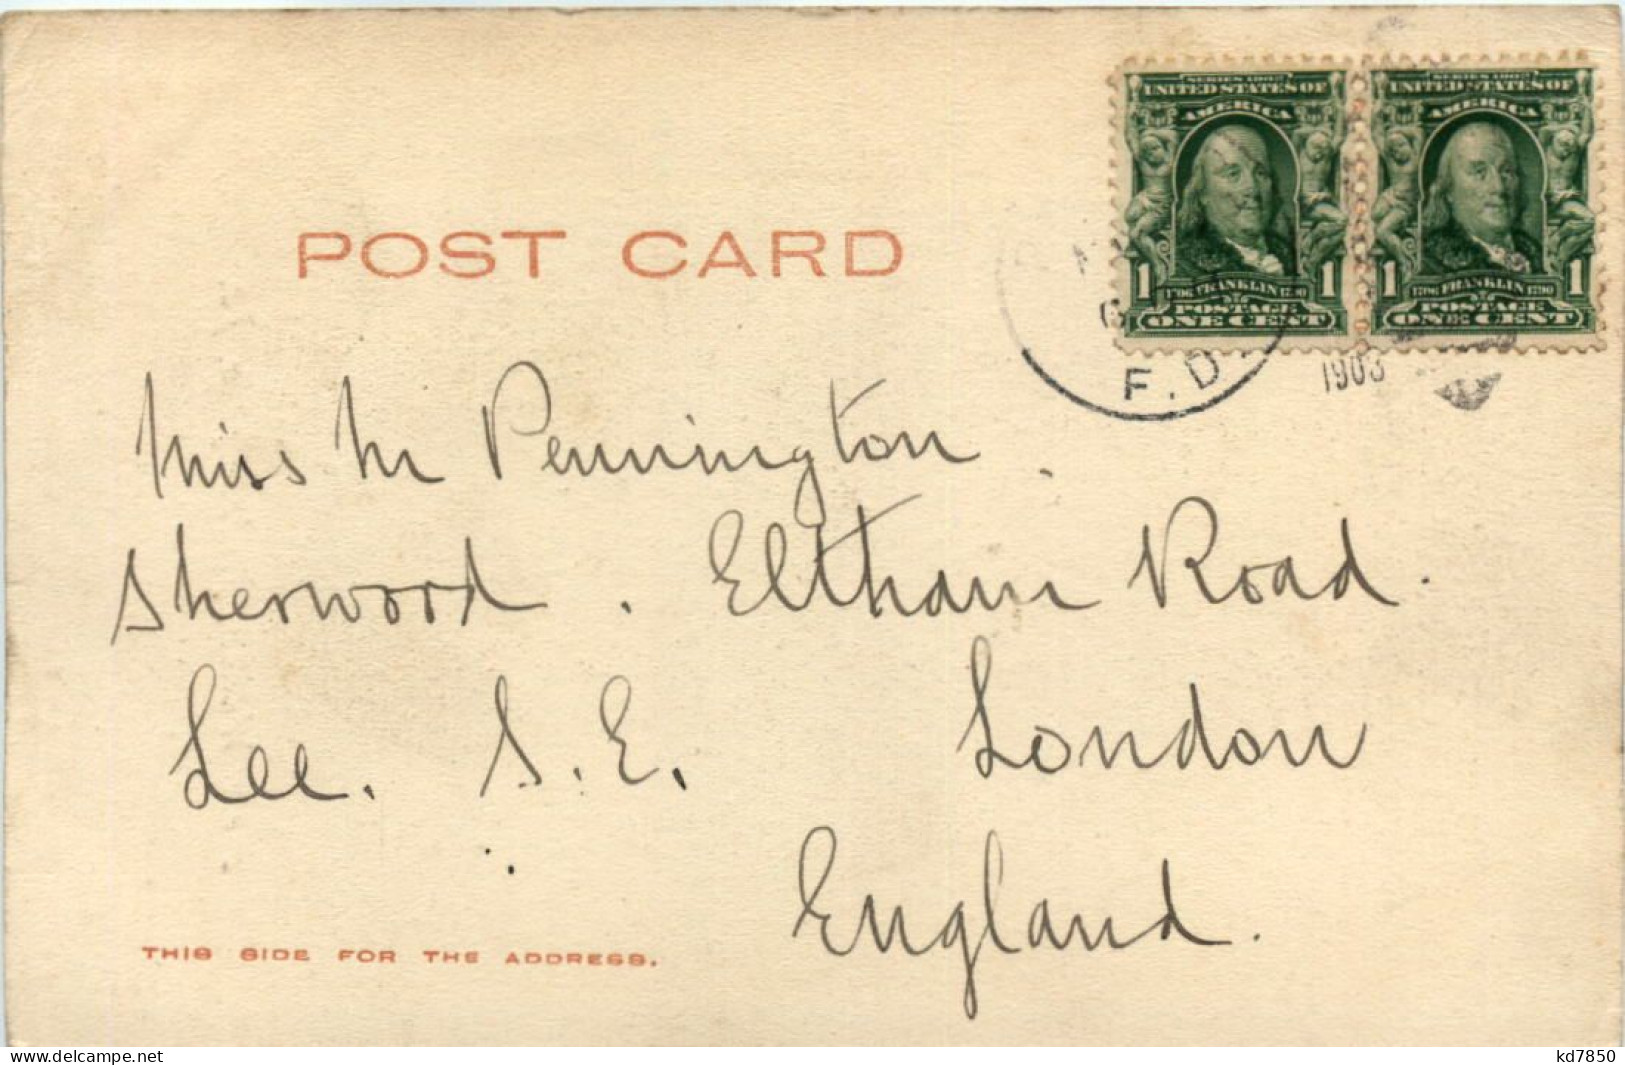 SERIES 1902
UNITED STATES OF
AMERICA
1706 FRANKLIN 1790
1 1
POSTAGE
ONE CENT
SERIES 1902
UNITED STATES OF
AMERICA
1706 FRANKLIN 1790
1 1
POSTAGE
ONE CENT
POST CARD
F. D.
1903
Miss M Pennington
Sherwood . Eltham Road.
Lee. S.E. London
England.
THIS SIDE FOR THE ADDRESS.
www.delcampe.net
kd7850